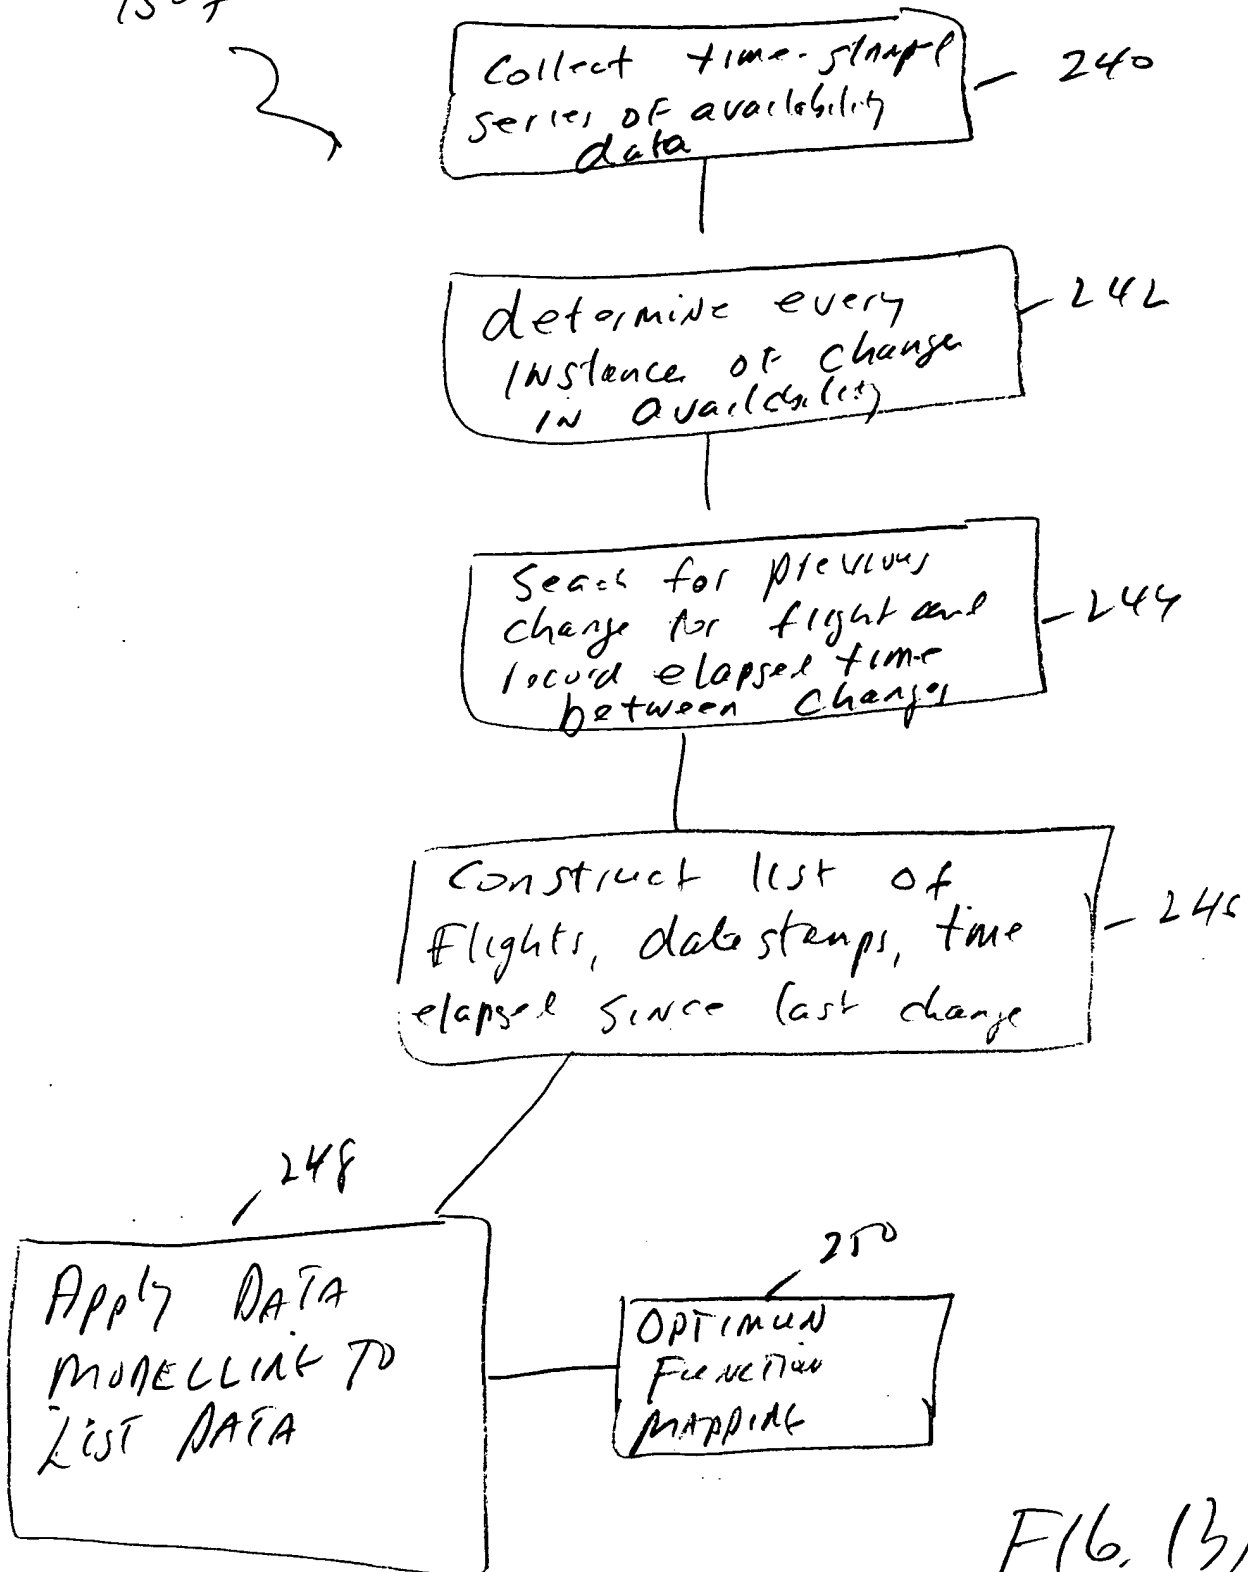 Collect time-stamped 240
series of availability
data
determine every 242
instance of change
in availability
Seach for previous
change for flight and 244
record elapsed time
between changes
Construct list of
Flights, datestamps, time 246
elapsed since last change
248
Apply DATA
MODELLING TO
LIST DATA
250
OPTIMUN
FUNCTION
MAPPING
FIG. 13